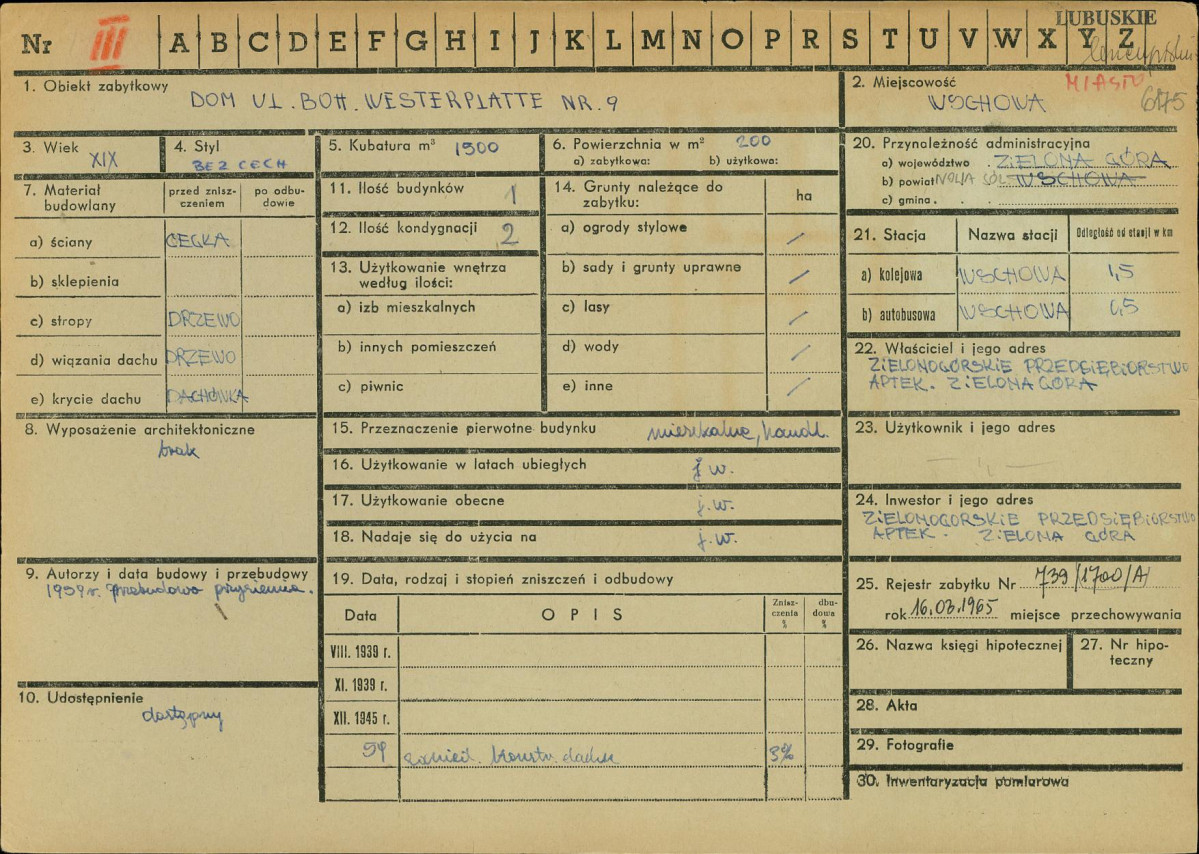 LUBUSKIE
Nr III A B C D E F G H I J K L M N O P R S T U V W X Y Z
MIASTO
6175
1. Obiekt zabytkowy
DOM UL. BOH. WESTERPLATTE NR. 9
2. Miejscowość
WSCHOWA
3. Wiek
XIX
4. Styl
BEZ CECH
5. Kubatura m³ 1500
6. Powierzchnia w m² 200
a) zabytkowa: b) użytkowa:
7. Materiał budowlany
przed zniszczeniem
po odbudowie
a) ściany CEGŁA
b) sklepienia
c) stropy DRZEWO
d) wiązania dachu DRZEWO
e) krycie dachu DACHÓWKA
8. Wyposażenie architektoniczne
brak
9. Autorzy i data budowy i przebudowy
1959 r. przebudowa przyziemia.
10. Udostępnienie
dostępny
11. Ilość budynków 1
12. Ilość kondygnacji 2
13. Użytkowanie wnętrza
według ilości:
a) izb mieszkalnych
b) innych pomieszczeń
c) piwnic
14. Grunty należące do
zabytku:
ha
a) ogrody stylowe /
b) sady i grunty uprawne /
c) lasy /
d) wody /
e) inne /
15. Przeznaczenie pierwotne budynku mieszkalne, handl.
16. Użytkowanie w latach ubiegłych j.w.
17. Użytkowanie obecne j.w.
18. Nadaje się do użycia na j.w.
19. Data, rodzaj i stopień zniszczeń i odbudowy
Data OPIS Zniszczenia % dbudowa %
VIII. 1939 r.
XI. 1939 r.
XII. 1945 r.
59 konstr. dachu 3%
20. Przynależność administracyjna
a) województwo ZIELONA GÓRA
b) powiat NOWA SÓL WSCHOWA
c) gmina
21. Stacja Nazwa stacji Odległość od stacji w km
a) kolejowa WSCHOWA 1,5
b) autobusowa WSCHOWA 0,5
22. Właściciel i jego adres
ZIELONOGÓRSKIE PRZEDSIĘBIORSTWO
APTEK. ZIELONA GÓRA
23. Użytkownik i jego adres
— " —
24. Inwestor i jego adres
ZIELONOGORSKIE PRZEDSIĘBIORSTWO
APTEK. ZIELONA GÓRA
25. Rejestr zabytku Nr 739/1700/A
rok 16.03.1965 miejsce przechowywania
26. Nazwa księgi hipotecznej
27. Nr hipoteczny
28. Akta
29. Fotografie
30. Inwentaryzacja pomiarowa